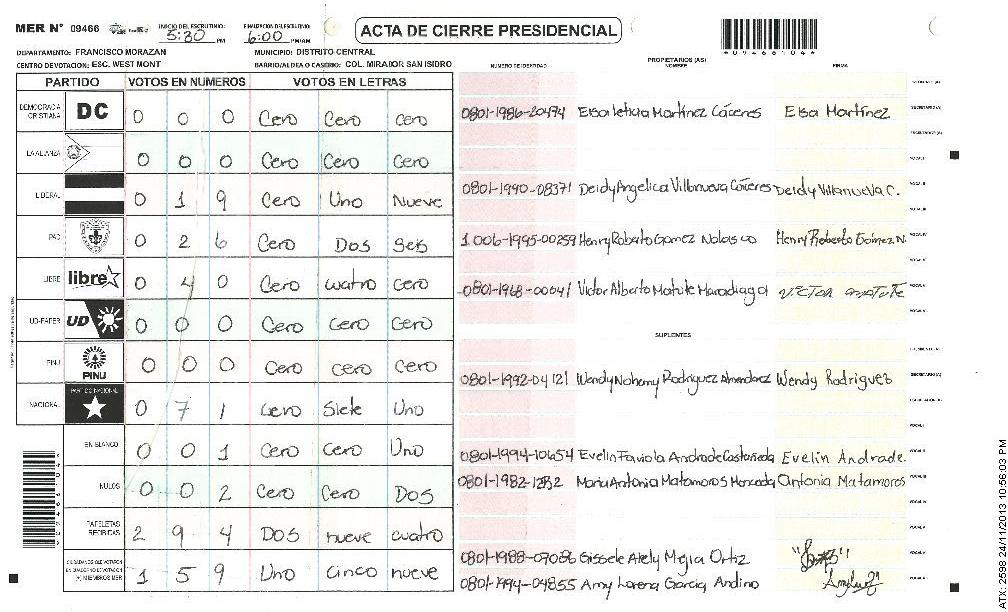 MER N° 09466 INICIO DEL ESCRUTINIO: 5:30 PM FINALIZACION DEL ESCRUTINIO: 6:00 PM/AM
ACTA DE CIERRE PRESIDENCIAL
*09466104*
DEPARTAMENTO: FRANCISCO MORAZAN MUNICIPIO: DISTRITO CENTRAL
CENTRO DE VOTACION: ESC. WEST MONT BARRIO/ALDEA O CASERIO: COL. MIRADOR SAN ISIDRO
PARTIDO VOTOS EN NUMEROS VOTOS EN LETRAS
DEMOCRACIA CRISTIANA DC 0 0 0 Cero Cero cero
LA ALIANZA 0 0 0 Cero Cero Cero
LIBERAL 0 1 9 Cero Uno Nueve
PAC 0 2 6 Cero Dos Seis
LIBRE libre 0 4 0 Cero cuatro cero
UD-FAPER UD 0 0 0 Cero Cero Cero
PINU PINU 0 0 0 Cero cero cero
NACIONAL PARTIDO NACIONAL 0 7 1 Cero Siete Uno
EN BLANCO 0 0 1 Cero Cero Uno
NULOS 0 0 2 Cero Cero Dos
PAPELETAS RECIBIDAS 2 9 4 Dos nueve cuatro
CIUDADANOS QUE VOTARON EN CUADERNO DE VOTACION (+) MIEMBROS MER 1 5 9 Uno cinco nueve
PROPIETARIOS (AS)
NUMERO DE IDENTIDAD NOMBRE FIRMA
0801-1986-20474 Elsa leticia Martínez Cáceres Elsa Martínez
0801-1990-08371 Deidy Angelica Villanueva Cáceres Deidy Villanueva C.
1006-1995-00259 Henry Roberto Gomez Nolasco Henry Roberto Gómez N.
0801-1968-00041 Victor Alberto Matute Maradiaga
SUPLENTES
0801-1992-04121 Wendy Nohemy Rodriguez Almendarez Wendy Rodriguez
0801-1994-10654 Evelin Faviola Andrade Castañeda Evelin Andrade.
0801-1982-1232 Maria Antonia Matamoros Moncada Antonia Matamoros
0801-1988-07086 Gissele Arely Mejia Ortiz
0801-1994-04855 Amy Lorena Garcia Andino
ATX-2598 24/11/2013 10:56:03 PM